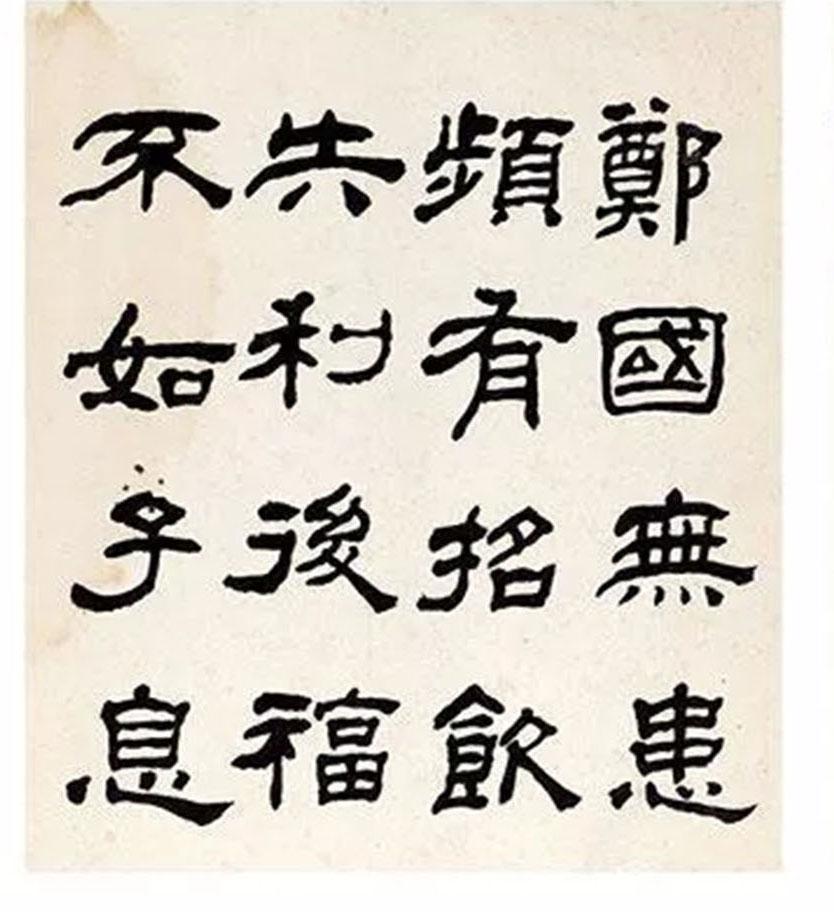 鄭國無患
頻有招飲
共利後福
不如子息